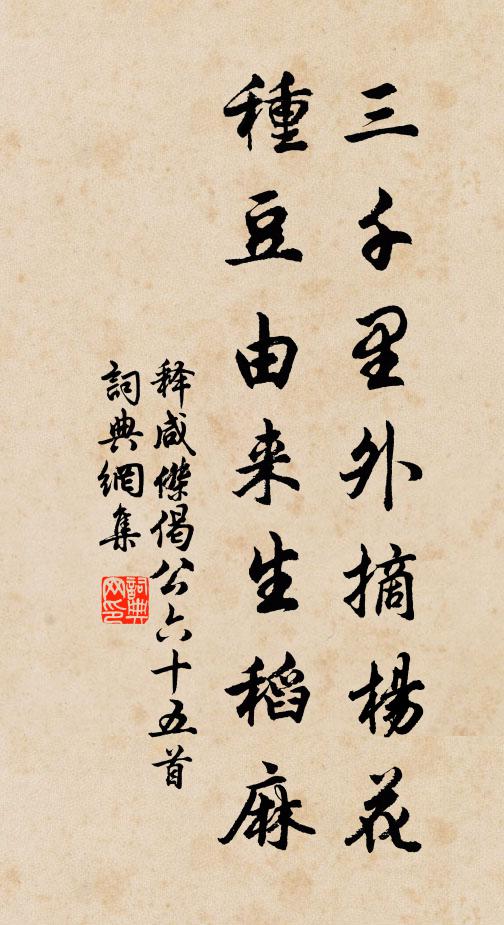 三千里外摘楊花
種豆由来生稻麻
释咸傑偈公六十五首
詞典網集
詞典
网印